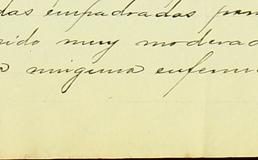 das empadradas par
nido muy moderad
a ninguna enferm